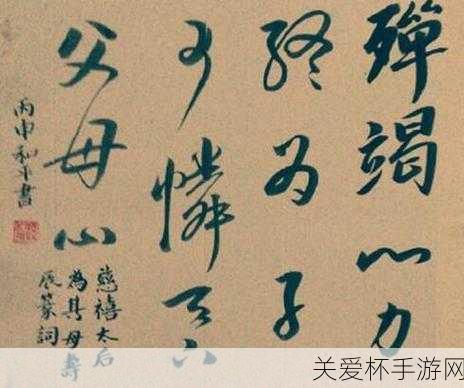 殫竭心力
终为子
可憐天下
父母心
慈禧太后
為其母壽
辰篆詞
丙申和平書
关爱杯手游网